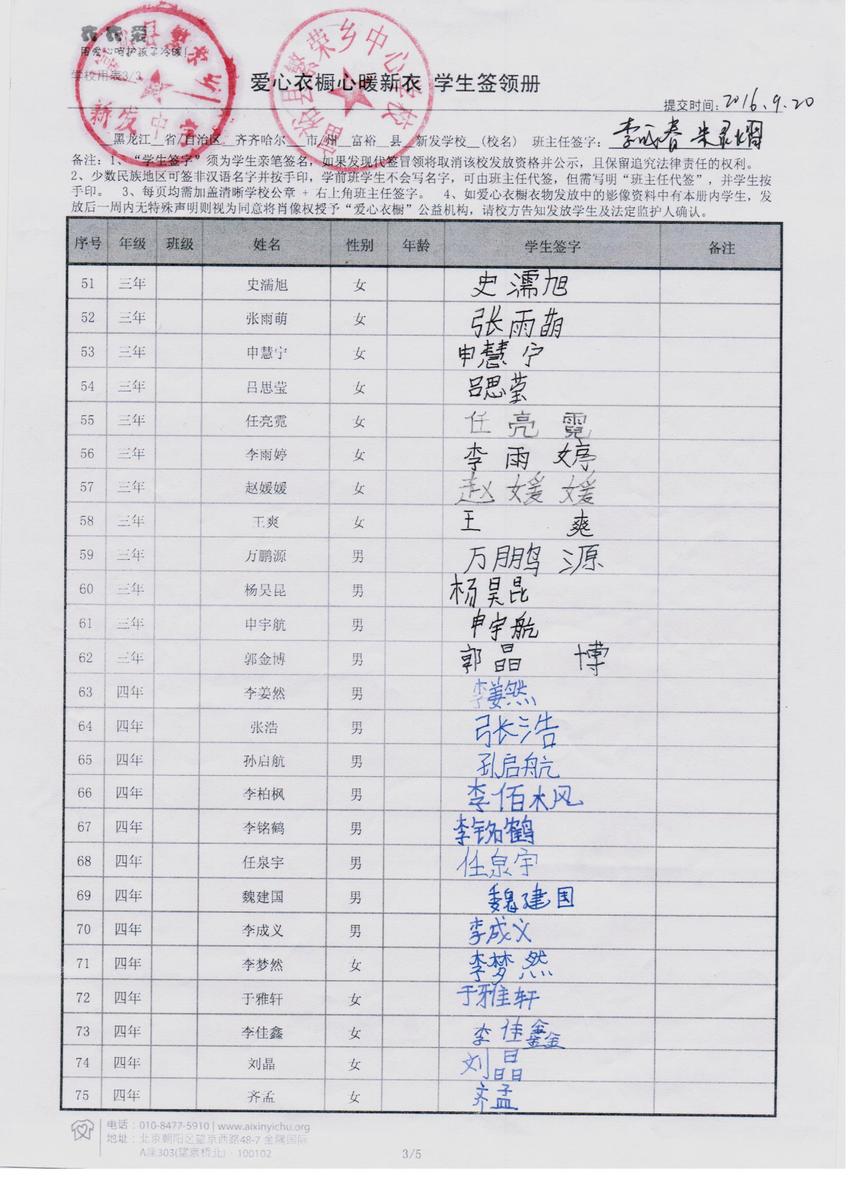 衣衣爱
用爱心呵护孩子冷暖!
学校用表3/3
新发中学
富裕县繁荣乡中心学校
爱心衣橱心暖新衣 学生签领册
提交时间:2016.9.20
黑龙江 省/自治区 齐齐哈尔 市/州 富裕 县 新发学校 (校名) 班主任签字:李成春
备注:1、“学生签字”须为学生亲笔签名,如果发现代签冒领将取消该校发放资格并公示,且保留追究法律责任的权利。
2、少数民族地区可签非汉语名字并按手印,学前班学生不会写名字,可由班主任代签,但需写明“班主任代签”,并学生按
手印。 3、每页均需加盖清晰学校公章 + 右上角班主任签字。 4、如爱心衣橱衣物发放中的影像资料中有本册内学生,发
放后一周内无特殊声明则视为同意将肖像权授予“爱心衣橱”公益机构,请校方告知发放学生及法定监护人确认。
序号 年级 班级 姓名 性别 年龄 学生签字 备注
51 三年 史濡旭 女 史濡旭
52 三年 张雨萌 女 张雨萌
53 三年 申慧宁 女 申慧宁
54 三年 吕思莹 女 吕思莹
55 三年 任亮霓 女 任亮霓
56 三年 李雨婷 女 李雨婷
57 三年 赵媛媛 女 赵媛媛
58 三年 王爽 女 王爽
59 三年 万鹏源 男 万鹏源
60 三年 杨昊昆 男 杨昊昆
61 三年 申宇航 男 申宇航
62 三年 郭金博 男 郭晶博
63 四年 李姜然 男 李姜然
64 四年 张浩 男 张浩
65 四年 孙启航 男 孙启航
66 四年 李柏枫 男 李佰枫
67 四年 李铭鹤 男 李铭鹤
68 四年 任泉宇 男 任泉宇
69 四年 魏建国 男 魏建国
70 四年 李成义 男 李成义
71 四年 李梦然 女 李梦然
72 四年 于雅轩 女 于雅轩
73 四年 李佳鑫 女 李佳鑫
74 四年 刘晶 女 刘晶
75 四年 齐孟 女 齐孟
电话:010-8477-5910 | www.aixinyichu.org
地址:北京朝阳区望京西路48-7 金隅国际
A座303(望京桥北)· 100102
3/5